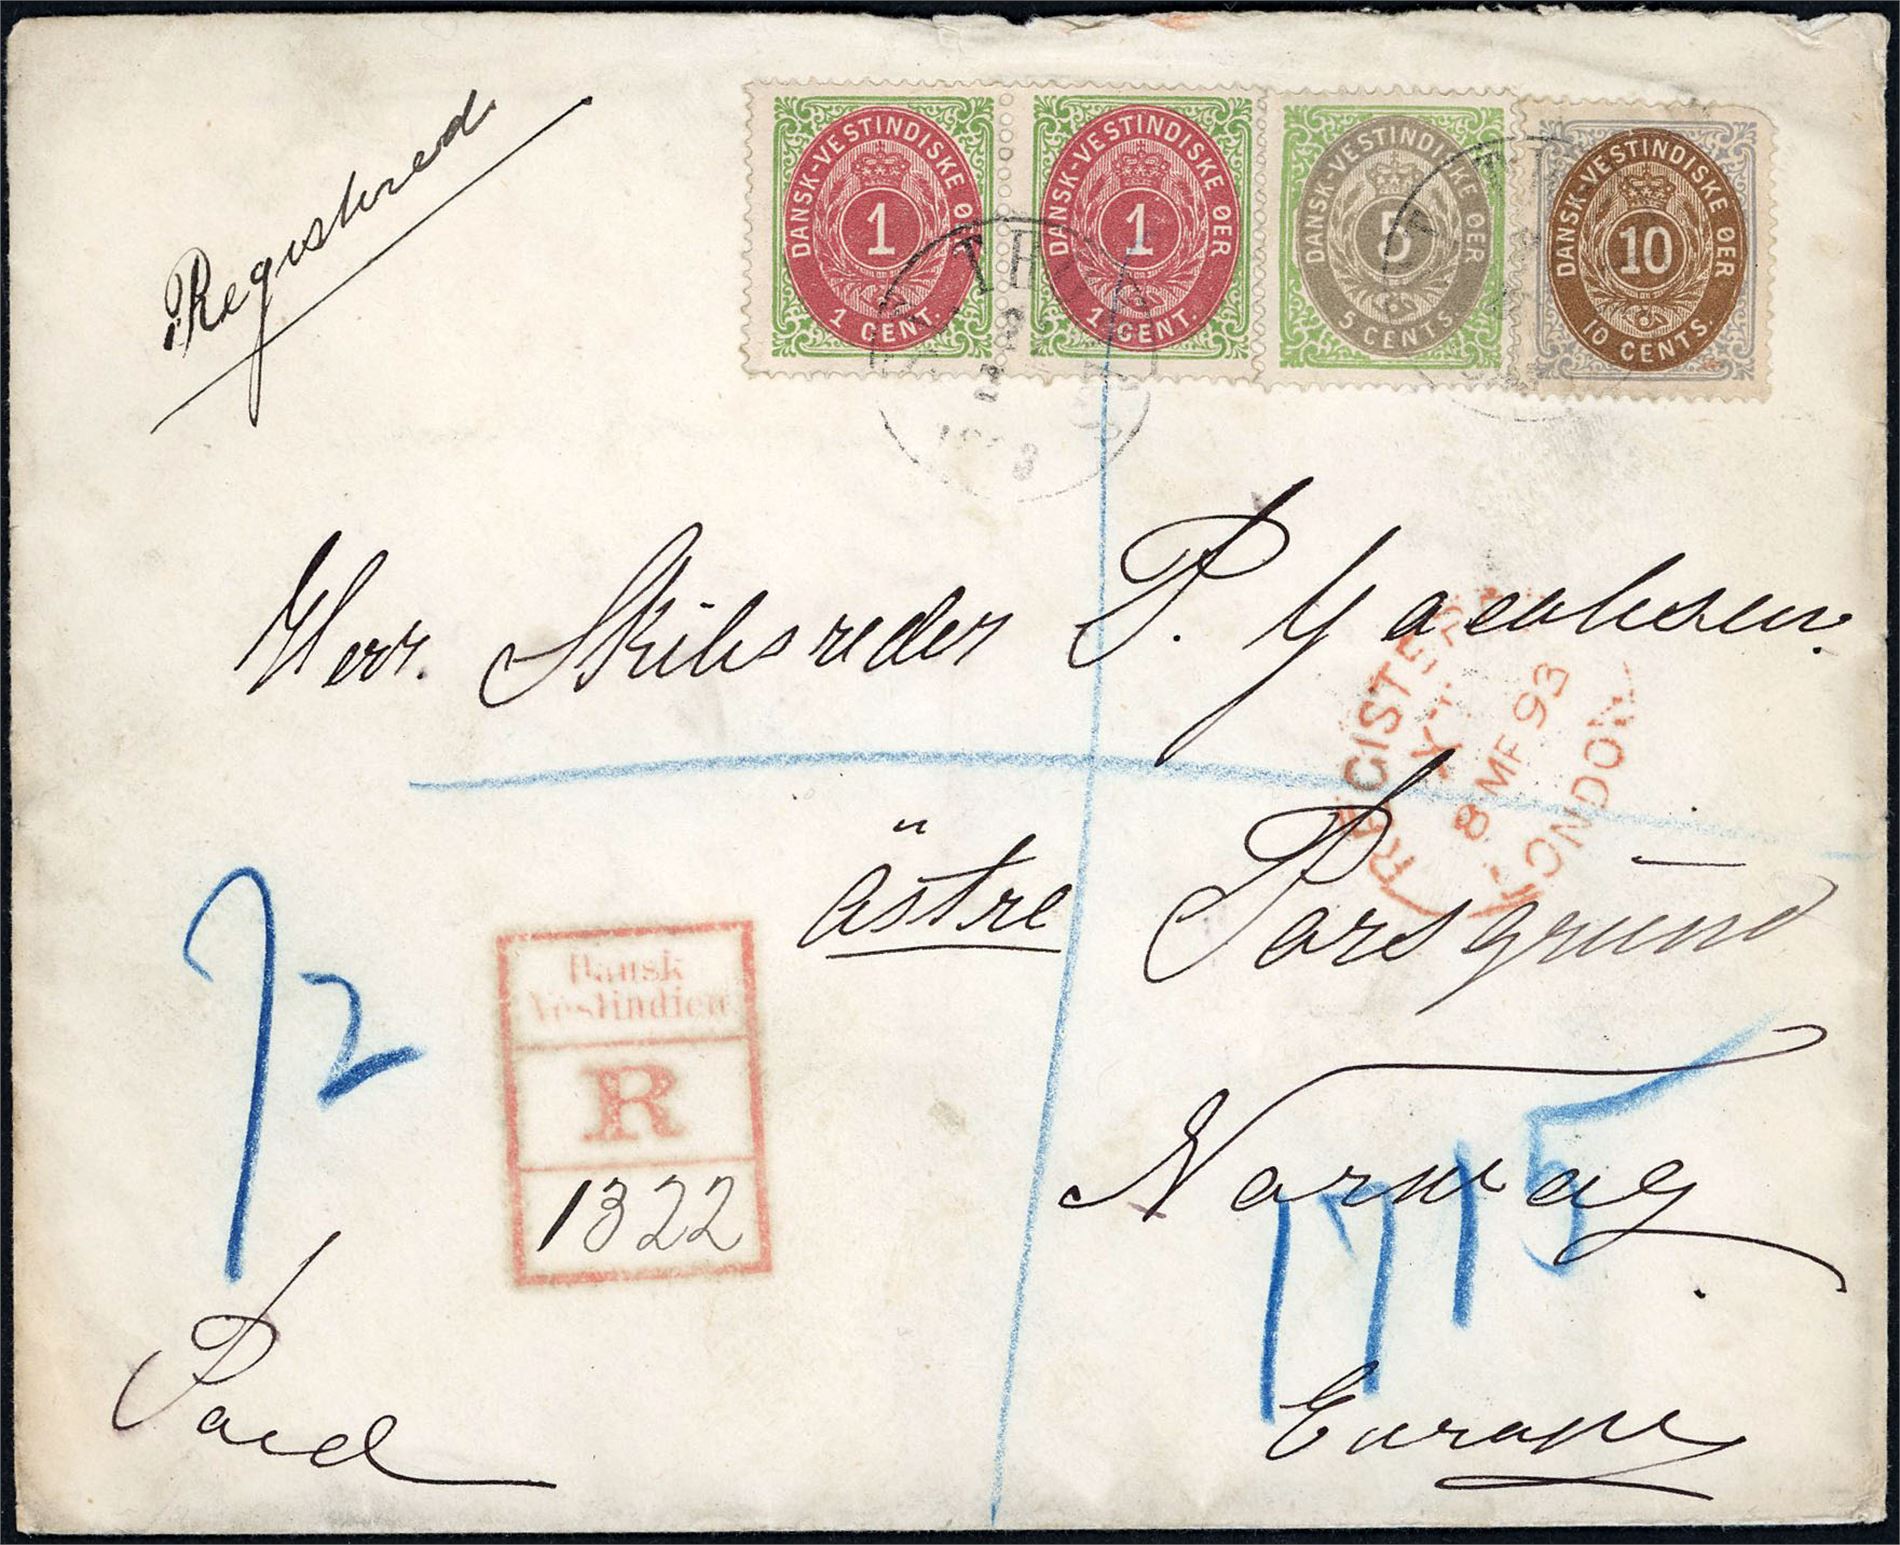 Registered
DANSK-VESTINDISKE ØER
1
1 CENT.
DANSK-VESTINDISKE ØER
1
1 CENT.
DANSK-VESTINDISKE ØER
5
5 CENTS.
DANSK-VESTINDISKE ØER
10
10 CENTS.
Herr. Skibsreder P. Yacobsen.
REGISTERED
8 MR 93
LONDON
östre Porsgrund
Dansk
Vestindien
R
1322
72
Norway
1715
Paid
Europe